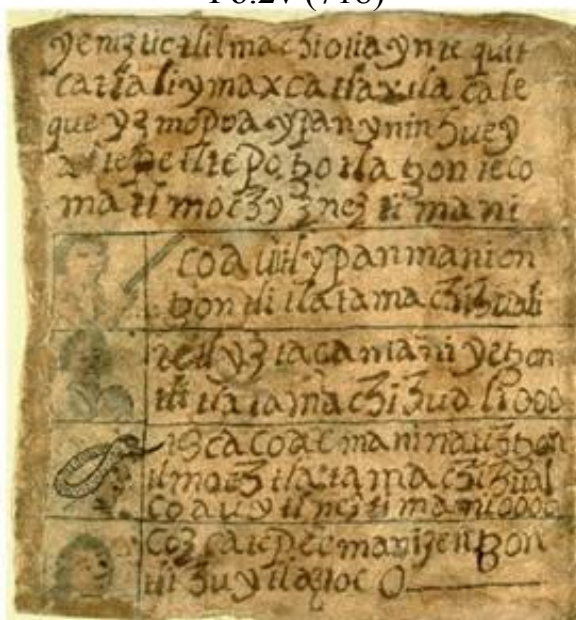 Fo.2v (716)
tlilmachiotia yn te quit
catlali y maxcatlax tlacale
que yz mopoa ypan ynin huey
altepetl tepotzotla tzonteco
matl mochy yz nez ti mani
coauitl ypan mani on
tzontli tlatamachihuali
tetl yztaca mani yetzon
tli tlatamachihuali ooo
iscacoac mani nauhtzon
tli moch tlatamachihual
coauytl nezti mani oooo
cozcatepec mani zentzon
tli huytlaztoc O